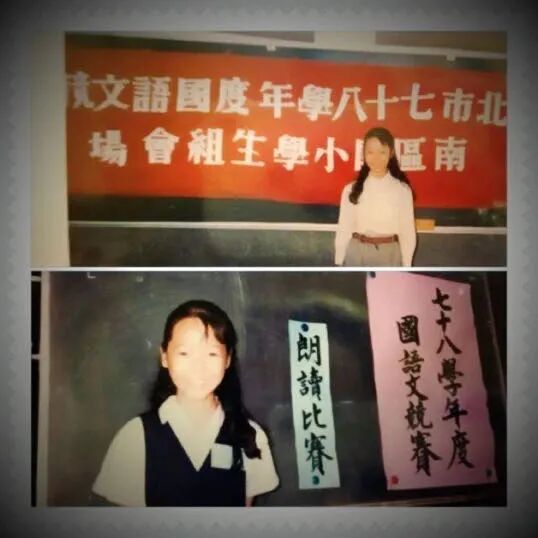 北市七十八學年度國語文
南區小學生組會場
七十八學年度
國語文競賽
朗讀比賽